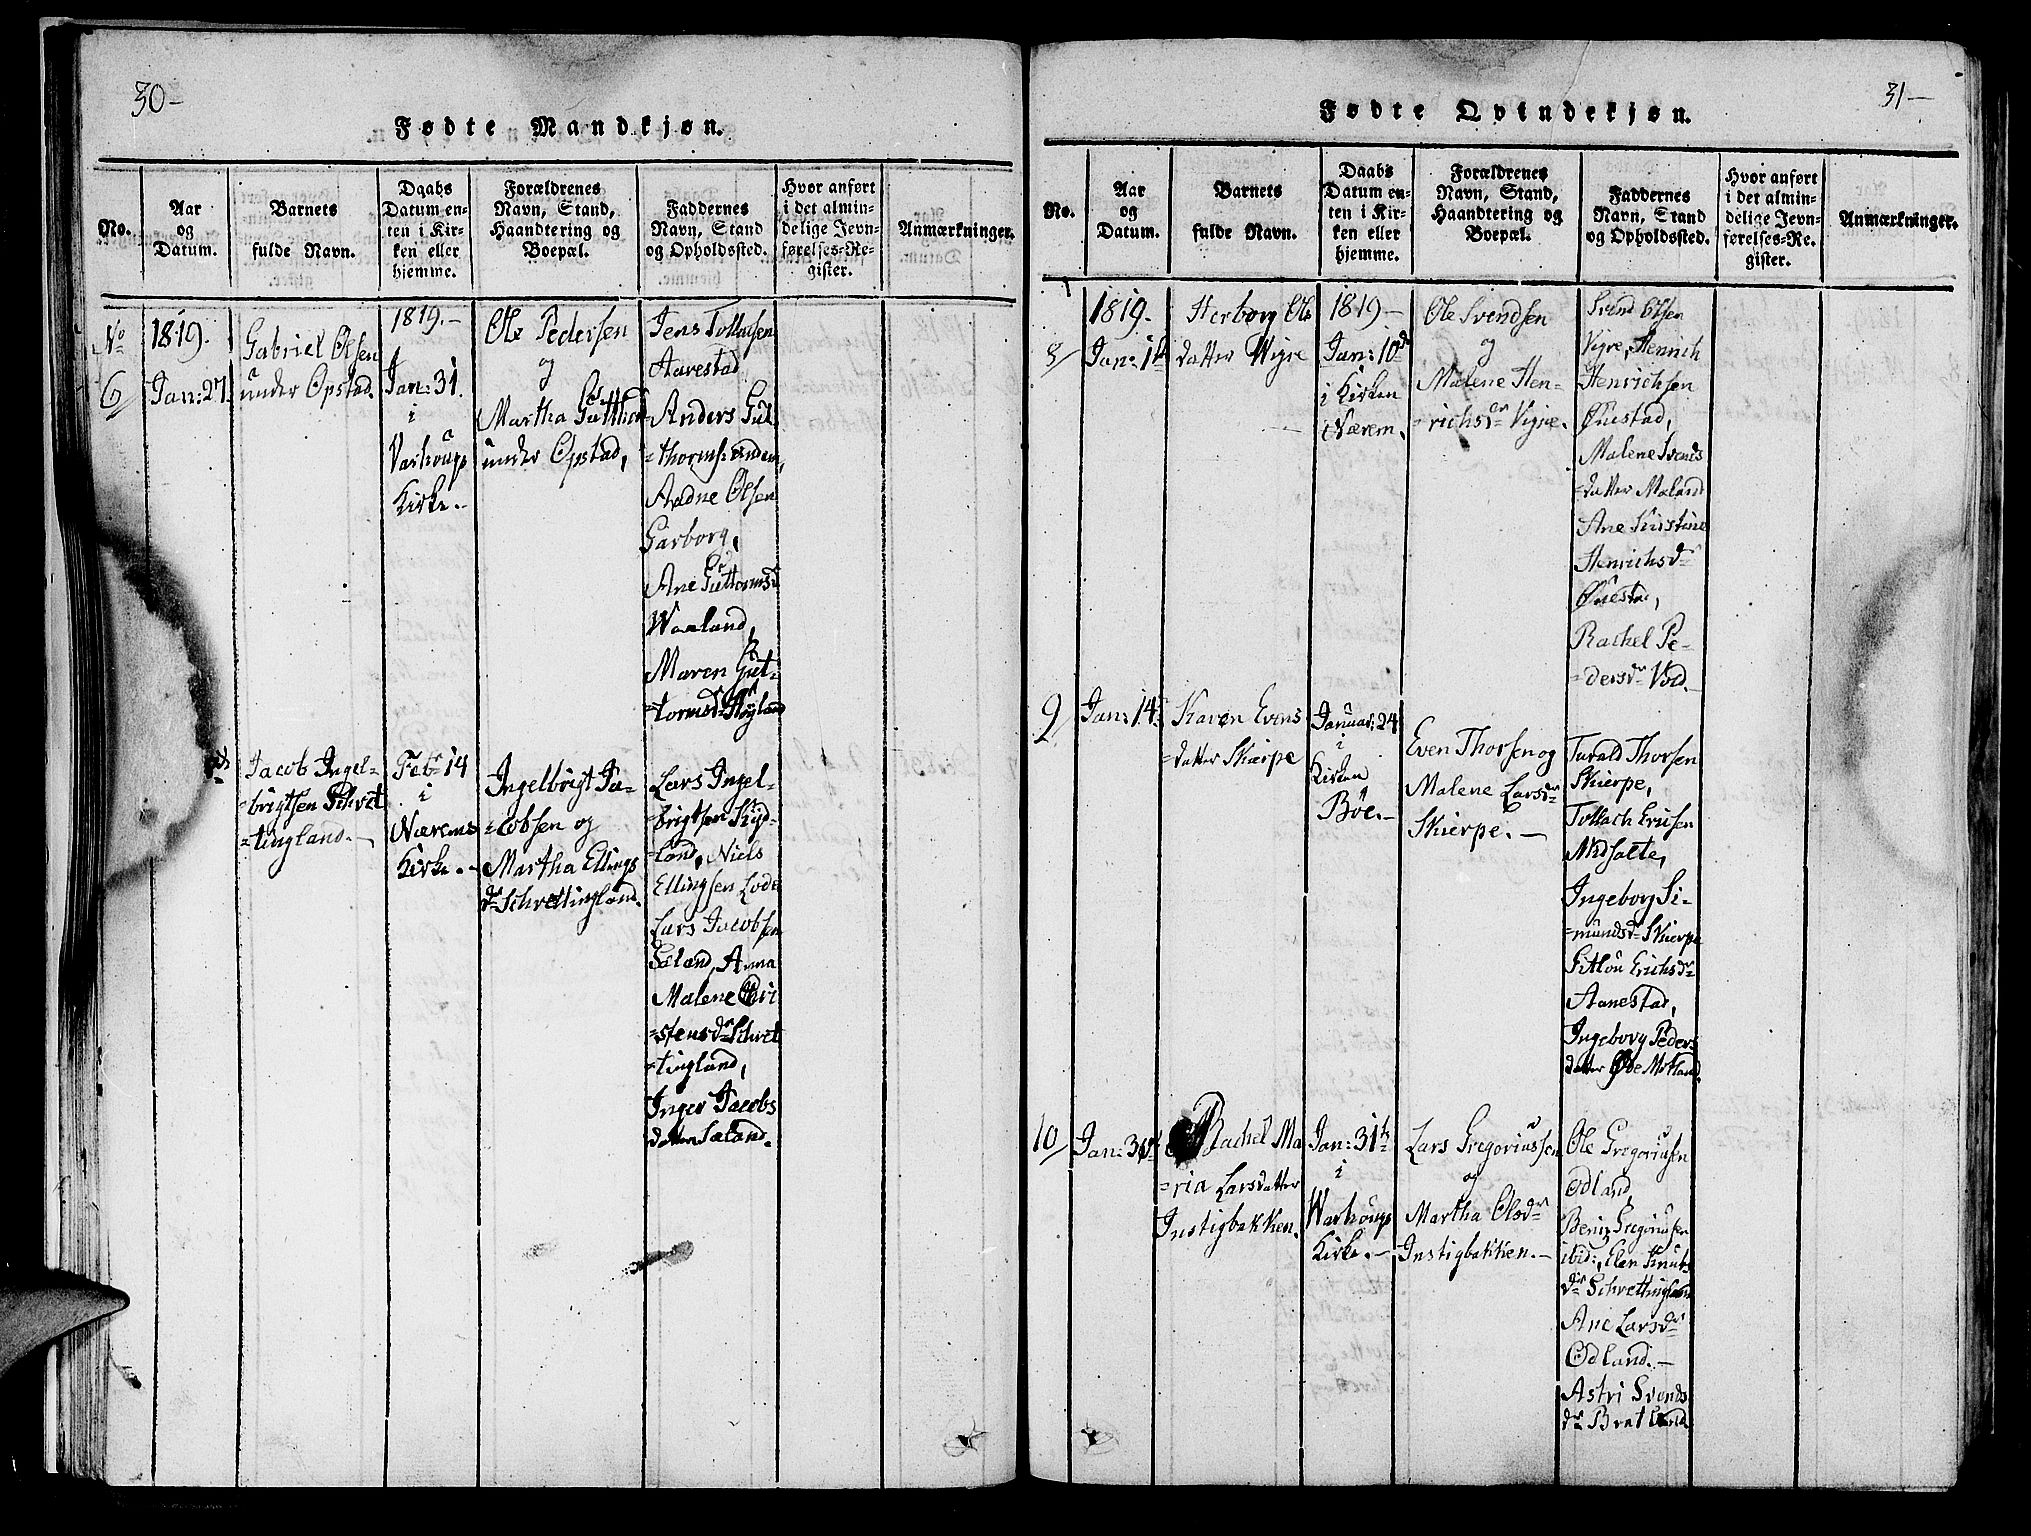 30-
Fødte Mandkjøn.
No.
Aar
og
Datum.
Barnets
fulde Navn.
Daabs
Datum en-
ten i Kir-
ken eller
hjemme.
Forældrenes
Navn, Stand,
Haandtering og
Boepæl.
Faddernes
Navn, Stand
og Opholdssted.
Hvor anført
i det almin-
delige Jevn-
førelses-Re-
gister.
Anmærkninger.
No
6
1819.
Jan: 27.
Gabriel Olsen
under Opstad.
1819.-
Jan: 31.
i
Varhougs
Kirke.-
Ole Pedersen
og
Martha
under Opstad,
Jens Tollagsen
Aarestad
Anders Gul
Aadne Olsen
Garborg,
Ane Guttormsdr
Waaland,
Maren Gut-
=tormsdr Høyland
Jacob Ingel-
=brigtsen Schret
=tingland.-
Febr 14
i
Nærems
Kirke.-
Ingelbrigt Ja-
=cobsen og
Martha Ellings
dr Schrettingland.
Lars Ingel-
=brigtsen
=land, Niels
Ellingsen Lode
Lars Jacobsen
Sæland, Anna
Malene Chri
=stensdr Schret
=tingland,
Inger Jacobs
datter Sæland.
31-
Fødte Qvindekjøn.
No.
Aar
og
Datum.
Barnets
fulde Navn.
Daabs
Datum en-
ten i Kir-
ken eller
hjemme.
Forældrenes
Navn, Stand,
Haandtering og
Boepæl.
Faddernes
Navn, Stand
og Opholdssted.
Hvor anført
i det almin-
delige Jevn-
førelses-Re-
gister.
Anmærkninger.
8
1819.
Jan: 1
Herborg Ols
datter Wigre
1819-
Jan: 10d
i Kirken
Nærem.
Ole Svendsen
og
Malene Hen-
=richsdr Vigre.
Svend Olsen
Vigre, Henrich
Henrichsen
Øuestad,
Malene Svends
=datter Mæland
Ane Kirstine
Henrichsdr
Øuestad,
Rachel Pe-
=dersdr Vold.-
9
Jan: 14
Karen Evens
datter Skierpe
Januar: 24
i
Kirken
Bøe.-
Even Thorsen og
Malene Larsdr
Skierpe.-
Tarald Thorsen
Skierpe,
Tollach Ericsen
Ingeborg Si-
=mundsdr Skierpe
Sitlou Erichsdr
Aanestad,
Ingeborg Peders
datter Motland
10
Jan: 3
Rachel Ma
=ria Larsdatter
Instigbakken.
Jan: 31
i
Warhougs
Kirke.-
Lars Gregoriussen
og
Martha Olsdr
Instigbakken.-
Ole Gregoriusen
Ødland,
Gregoriusen
ibid:, Elen Knuts
dr Schrettingland
Ane Larsdr
Ødland.-
Astri Svends
dr Bratland.